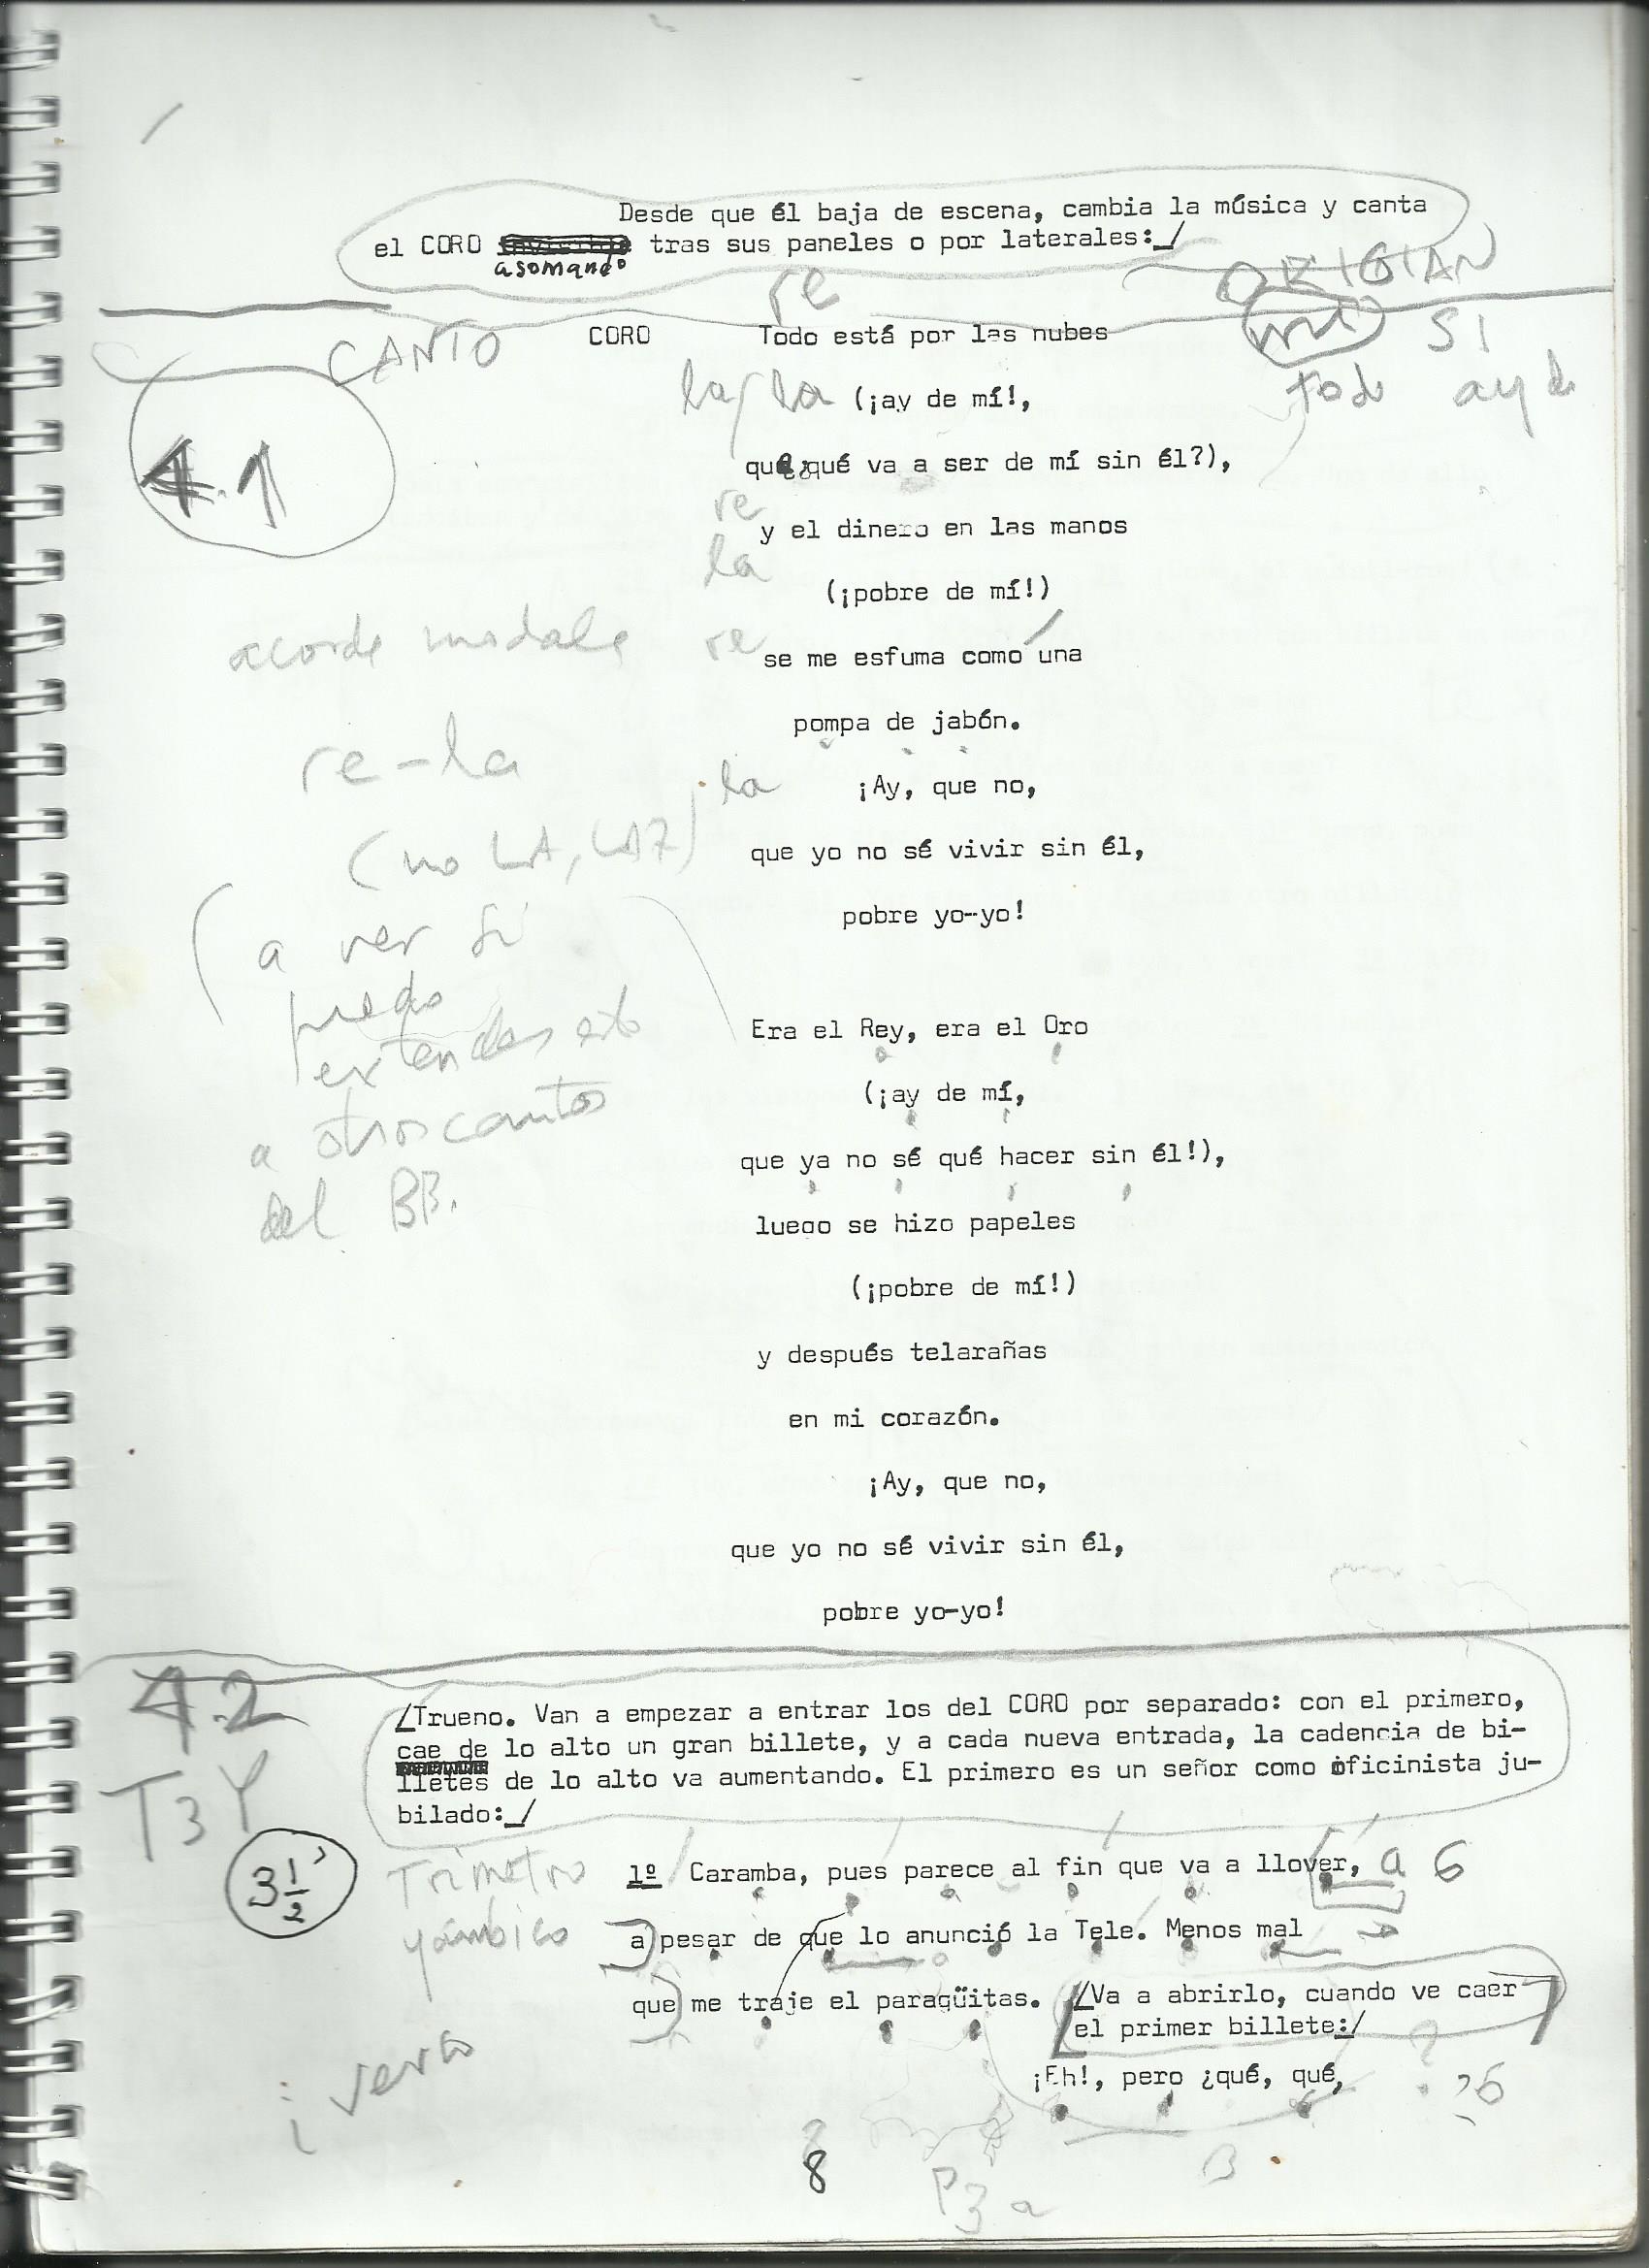 Desde que él baja de escena, cambia la música y canta
el CORO tras sus paneles o por laterales:/
asomando
re
CANTO
CORO Todo está por las nubes
mi SI
todo ay de
la la (¡ay de mí!,
4.1
que ¿qué va a ser de mí sin él?),
re
y el dinero en las manos
la
(¡pobre de mí!)
acorde modale re
se me esfuma como una
pompa de jabón.
re-la
la ¡Ay, que no,
(no LA, LA7)
que yo no sé vivir sin él,
pobre yo-yo!
(a ver si
puedo
extender esto
a otros cantos
del BB.
Era el Rey, era el Oro
(¡ay de mí,
que ya no sé qué hacer sin él!),
luego se hizo papeles
(¡pobre de mí!)
y después telarañas
en mi corazón.
¡Ay, que no,
que yo no sé vivir sin él,
pobre yo-yo!
4.2
T3Y
/Trueno. Van a empezar a entrar los del CORO por separado: con el primero,
cae de lo alto un gran billete, y a cada nueva entrada, la cadencia de bi-
lletes de lo alto va aumentando. El primero es un señor como oficinista ju-
bilado:/
3 1/2'
Trímetro
yámbico
1º Caramba, pues parece al fin que va a llover, a 6
a) pesar de que lo anunció la Tele. Menos mal
que) me traje el paragüitas. /Va a abrirlo, cuando ve caer
el primer billete:/
¡Eh!, pero ¿qué, qué,
verso
8
P3a